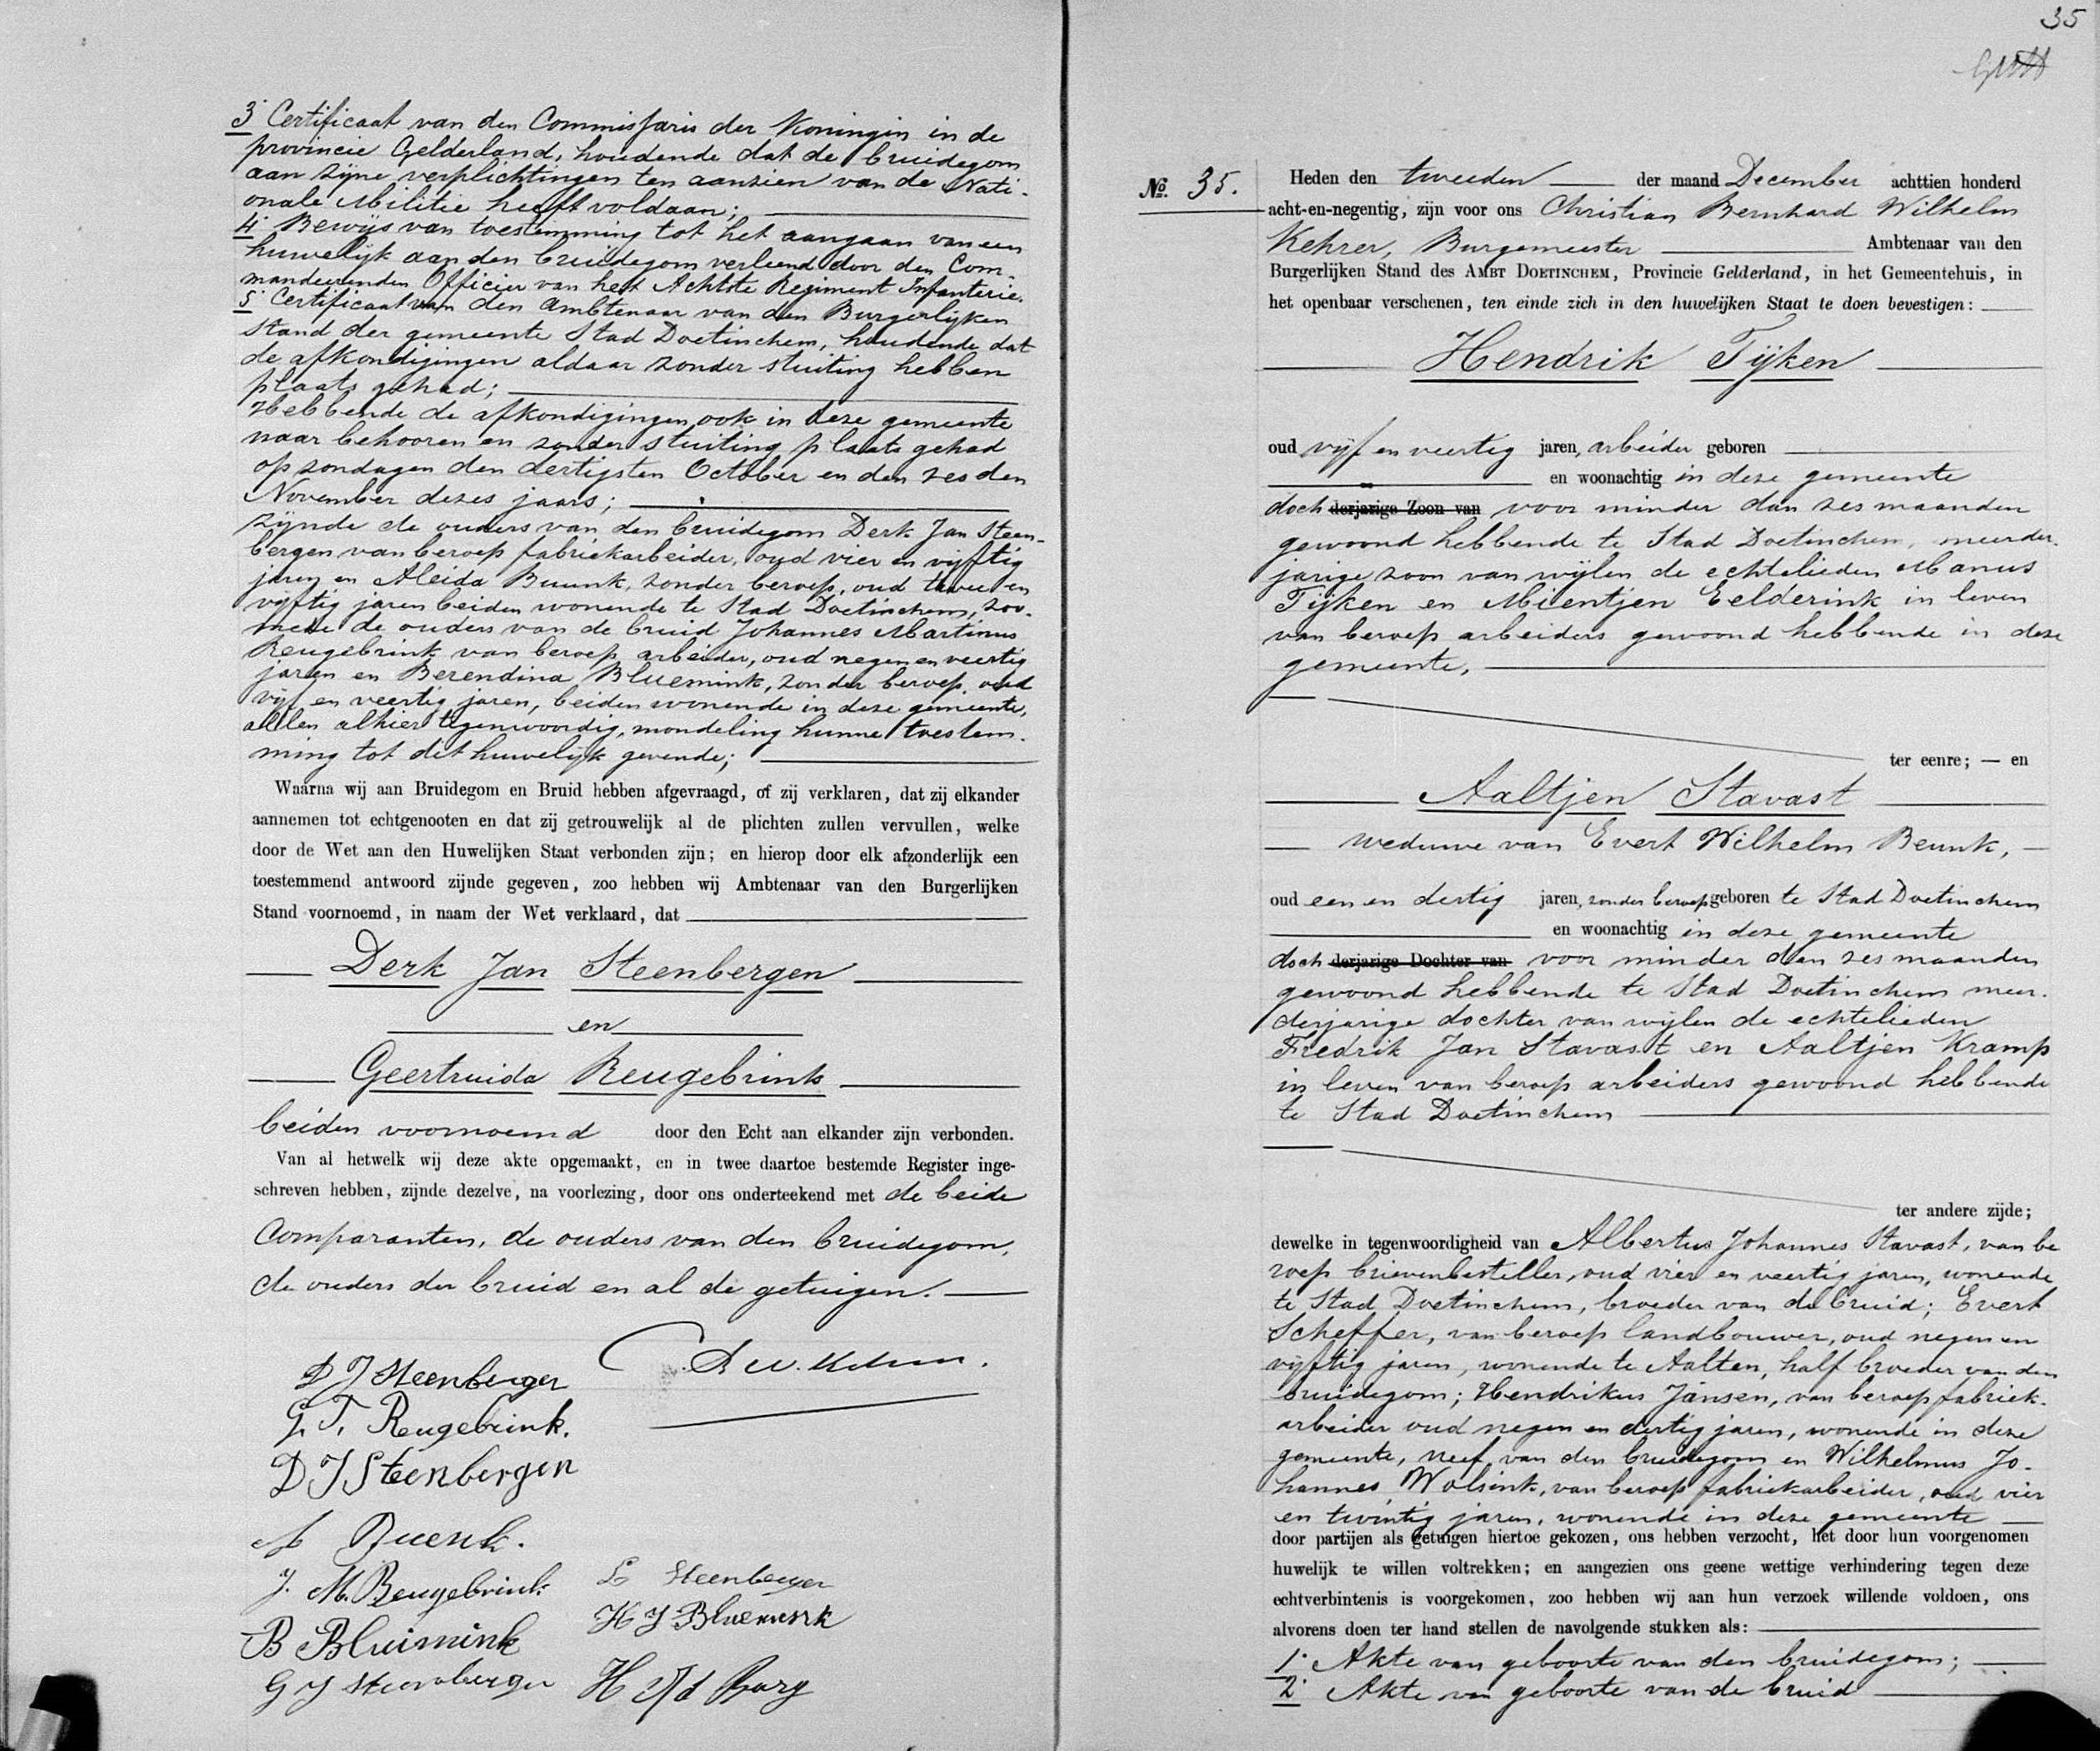 3° Certificaat van den Commissaris der Koningin in de
provincie Gelderland, houdende dat de bruidegom
aan zijne verplichtingen ten aanzien van de Nati-
onale Militie heeft voldaan;
4° Bewijs van toestemming tot het aangaan van een
huwelijk aan den bruidegom verleend door den Com-
mandeerenden Officier van het Achtste Regiment Infanterie.
5° Certificaat van den Ambtenaar van den Burgerlijken
Stand der gemeente Stad Doetinchem, houdende dat
de afkondigingen aldaar zonder stuiting hebben
plaats gehad;
Hebbende de afkondigingen ook in deze gemeente
naar behooren en zonder stuiting plaats gehad
op zondagen den dertigsten October en den zesden
November dezes jaars;
zijnde de ouders van den bruidegom Derk Jan Steen-
bergen van beroep fabriekarbeider, oud vier en vijftig
jaren en Aleida Buunk, zonder beroep, oud twee en
vijftig jaren beiden wonende te Stad Doetinchem, zoo-
mede de ouders van de bruid Johannes Martinus
Reugebrink van beroep arbeider, oud negen en veertig
jaren en Berendina Bluemink, zonder beroep, oud
vijf en veertig jaren, beiden wonende in deze gemeente,
allen alhier tegenwoordig, mondeling hunne toestem-
ming tot dit huwelijk gevende;
Waarna wij aan Bruidegom en Bruid hebben afgevraagd, of zij verklaren, dat zij elkander
aannemen tot echtgenooten en dat zij getrouwelijk al de plichten zullen vervullen, welke
door de Wet aan den Huwelijken Staat verbonden zijn; en hierop door elk afzonderlijk een
toestemmend antwoord zijnde gegeven, zoo hebben wij Ambtenaar van den Burgerlijken
Stand voornoemd, in naam der Wet verklaard, dat
Derk Jan Steenbergen
en
Geertruida Reugebrink
beiden voornoemd door den Echt aan elkander zijn verbonden.
Van al hetwelk wij deze akte opgemaakt, en in twee daartoe bestemde Register inge-
schreven hebben, zijnde dezelve, na voorlezing, door ons onderteekend met de beide
Comparanten, de ouders van den bruidegom,
de ouders der bruid en al de getuigen.
D J Steenberger
G. T. Reugebrink.
D J Steenbergen
A Buenk.
J. M. Reugebrink
B Bluimink
G J Steenberger
L Steenberger
H J Bluemenk
35
No. 35.
Heden den tweeden der maand December achttien honderd
acht-en-negentig, zijn voor ons Christian Bernhard Wilhelm
Kehrer, Burgemeester Ambtenaar van den
Burgerlijken Stand des AMBT DOETINCHEM, Provincie Gelderland, in het Gemeentehuis, in
het openbaar verschenen, ten einde zich in den huwelijken Staat te doen bevestigen:
Hendrik Tijken
oud vijf en veertig jaren, arbeider geboren
en woonachtig in deze gemeente
doch derjarige Zoon van voor minder dan zes maanden
gewoond hebbende te Stad Doetinchem, meerder-
jarige zoon van wijlen de echtelieden Manus
Tijken en Mientjen Eelderink in leven
van beroep arbeiders gewoond hebbende in deze
gemeente,
ter eenre; — en
Aaltjen Stavast
weduwe van Evert Wilhelm Beunk,
oud een en dertig jaren, zonder beroep geboren te Stad Doetinchem
en woonachtig in deze gemeente
doch derjarige Dochter van voor minder dan zes maanden
gewoond hebbende te Stad Doetinchem meer-
derjarige dochter van wijlen de echtelieden
Fredrik Jan Stavast en Aaltjen Kramp
in leven van beroep arbeiders gewoond hebbende
te Stad Doetinchem
ter andere zijde;
dewelke in tegenwoordigheid van Albertus Johannes Stavast, van be
roep brievenbesteller, oud vier en veertig jaren, wonende
te Stad Doetinchem, broeder van de bruid; Evert
Scheffer, van beroep landbouwer, oud negen en
vijftig jaren, wonende te Aalten, half broeder van den
bruidegom; Hendrikus Jansen, van beroep fabriek-
arbeider oud negen en dertig jaren, wonende in deze
gemeente, neef van den bruidegom en Wilhelmus Jo-
hannes Wolsink, van beroep fabriekarbeider, oud vier
en twintig jaren, wonende in deze gemeente
door partijen als getuigen hiertoe gekozen, ons hebben verzocht, het door hun voorgenomen
huwelijk te willen voltrekken; en aangezien ons geene wettige verhindering tegen deze
echtverbintenis is voorgekomen, zoo hebben wij aan hun verzoek willende voldoen, ons
alvorens doen ter hand stellen de navolgende stukken als:
1° Akte van geboorte van den bruidegom;
2° Akte van geboorte van de bruid